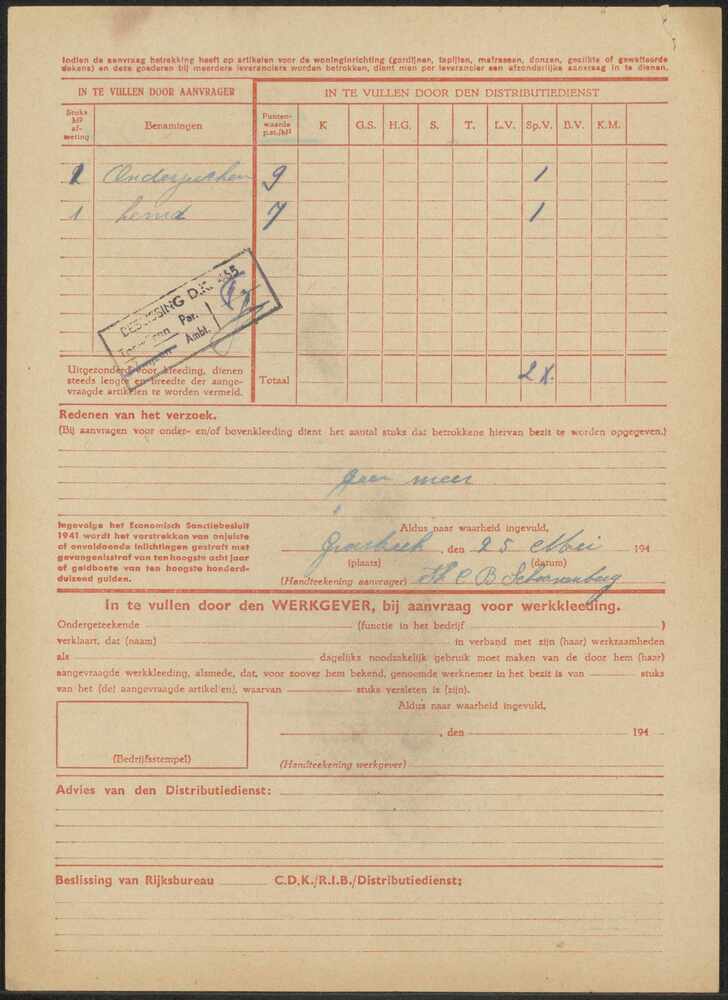 Indien de aanvraag betrekking heeft op artikelen voor de woninginrichting (gordijnen, tapijten, matrassen, donzen, gestikte of gewatteerde
dekens) en deze goederen bij meerdere leveranciers worden betrokken, dient men per leverancier een afzonderlijke aanvraag in te dienen.
IN TE VULLEN DOOR AANVRAGER
IN TE VULLEN DOOR DEN DISTRIBUTIEDIENST
Stuks M² af- meting
Benamingen
Punten- waarde p.st./M²
K G.S. H.G. S. T. L.V. Sp.V. B.V. K.M.
9 1
1 hemd 7 1
BESLISSING D.K. 455
Par.
Ambt.
Uitgezonderd voor kleeding, dienen
steeds lengte en breedte der aange-
vraagde artikelen te worden vermeld.
Totaal
2 X.
Redenen van het verzoek.
(Bij aanvragen voor onder- en/of bovenkleeding dient het aantal stuks dat betrokkene hiervan bezit te worden opgegeven.)
geen meer
Ingevolge het Economisch Sanctiebesluit
1941 wordt het verstrekken van onjuiste
of onvoldoende inlichtingen gestraft met
gevangenisstraf van ten hoogste acht jaar
of geldboete van ten hoogste honderd-
duizend gulden.
Aldus naar waarheid ingevuld,
Groesbeek, den 25 Mei 194
(plaats) (datum)
(Handteekening aanvrager) Th C B Schoonenberg
In te vullen door den WERKGEVER, bij aanvraag voor werkkleeding.
Ondergeteekende (functie in het bedrijf )
verklaart, dat (naam) in verband met zijn (haar) werkzaamheden
als dagelijks noodzakelijk gebruik moet maken van de door hem (haar)
aangevraagde werkkleeding, alsmede, dat, voor zoover hem bekend, genoemde werknemer in het bezit is van stuks
van het (de) aangevraagde artikel(en), waarvan stuks versleten is (zijn).
Aldus naar waarheid ingevuld,
, den 194
(Bedrijfsstempel)
(Handteekening werkgever)
Advies van den Distributiedienst:
Beslissing van Rijksbureau C.D.K./R.I.B./Distributiedienst: